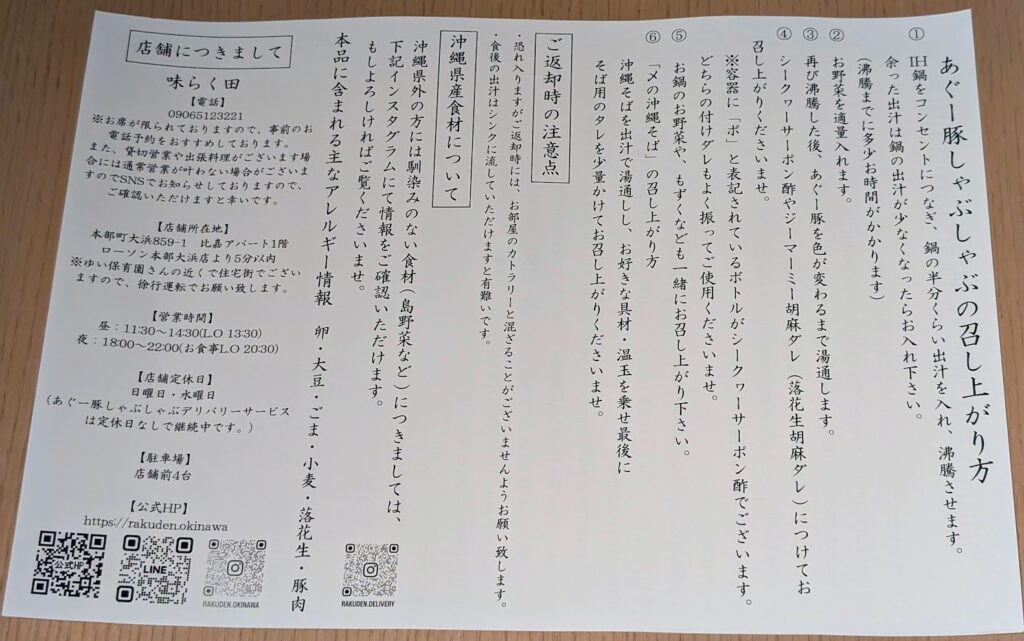 あぐー豚しゃぶしゃぶの召し上がり方
① IH鍋をコンセントにつなぎ、鍋の半分くらい出汁を入れ、沸騰させます。
余った出汁は鍋の出汁が少なくなったらお入れ下さい。
(沸騰までに多少お時間がかかります)
② お野菜を適量入れます。
③ 再び沸騰した後、あぐー豚を色が変わるまで湯通します。
④ シークヮーサーポン酢やジーマーミー胡麻ダレ(落花生胡麻ダレ)につけてお
召し上がりくださいませ。
※容器に「ポ」と表記されているボトルがシークヮーサーポン酢でございます。
どちらの付けダレもよく振ってご使用くださいませ。
⑤ お鍋のお野菜や、もずくなども一緒にお召し上がり下さい。
⑥ 「〆の沖縄そば」の召し上がり方
沖縄そばを出汁で湯通しし、お好きな具材・温玉を乗せ最後に
そば用のタレを少量かけてお召し上がりくださいませ。
ご返却時の注意点
・恐れ入りますがご返却時には、お部屋のカトラリーと混ざることがございませんようお願い致します。
・食後の出汁はシンクに流していただけますと有難いです。
沖縄県産食材について
沖縄県外の方には馴染みのない食材(島野菜など)につきましては、
下記インスタグラムにて情報をご確認いただけます。
もしよろしければご覧くださいませ。
本品に含まれる主なアレルギー情報 卵・大豆・ごま・小麦・落花生・豚肉
RAKUDEN.DELIVERY
店舗につきまして
味らく田
【電話】
09065123221
※お席が限られておりますので、事前のお
電話予約をおすすめしております。
また、貸切営業や出張料理がございます場
合には通常営業が叶わない場合がございま
すのでSNSでお知らせしておりますので、
ご確認いただけますと幸いです。
【店舗所在地】
本部町大浜859-1 比嘉アパート1階
ローソン本部大浜店より5分以内
※ゆい保育園さんの近くで住宅街でござい
ますので、徐行運転でお願い致します。
【営業時間】
昼:11:30〜14:30(L.O 13:30)
夜:18:00〜22:00(お食事L.O 20:30)
【店舗定休日】
日曜日・水曜日
(あぐー豚しゃぶしゃぶデリバリーサービス
は定休日なしで継続中です。)
【駐車場】
店舗前4台
【公式HP】
https://rakuden.okinawa
公式HP
LINE
RAKUDEN.OKINAWA